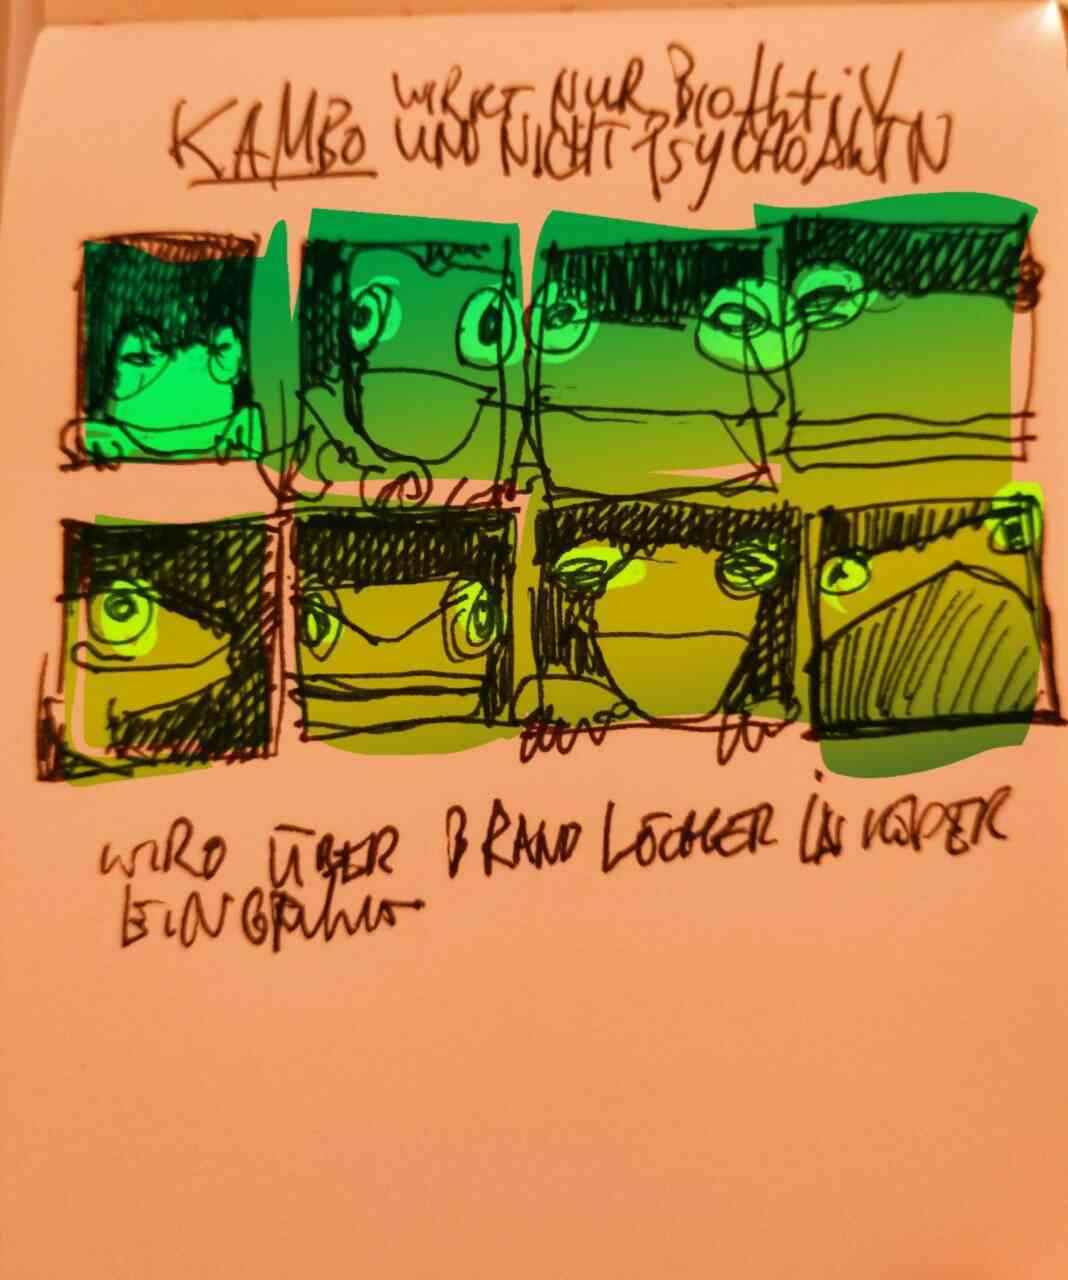 KAMBO WIRKT NUR BIOAKTIV
UND NICHT PSYCHOAKTIV
WIRD ÜBER BRAND LÖCHER IN KÖPER